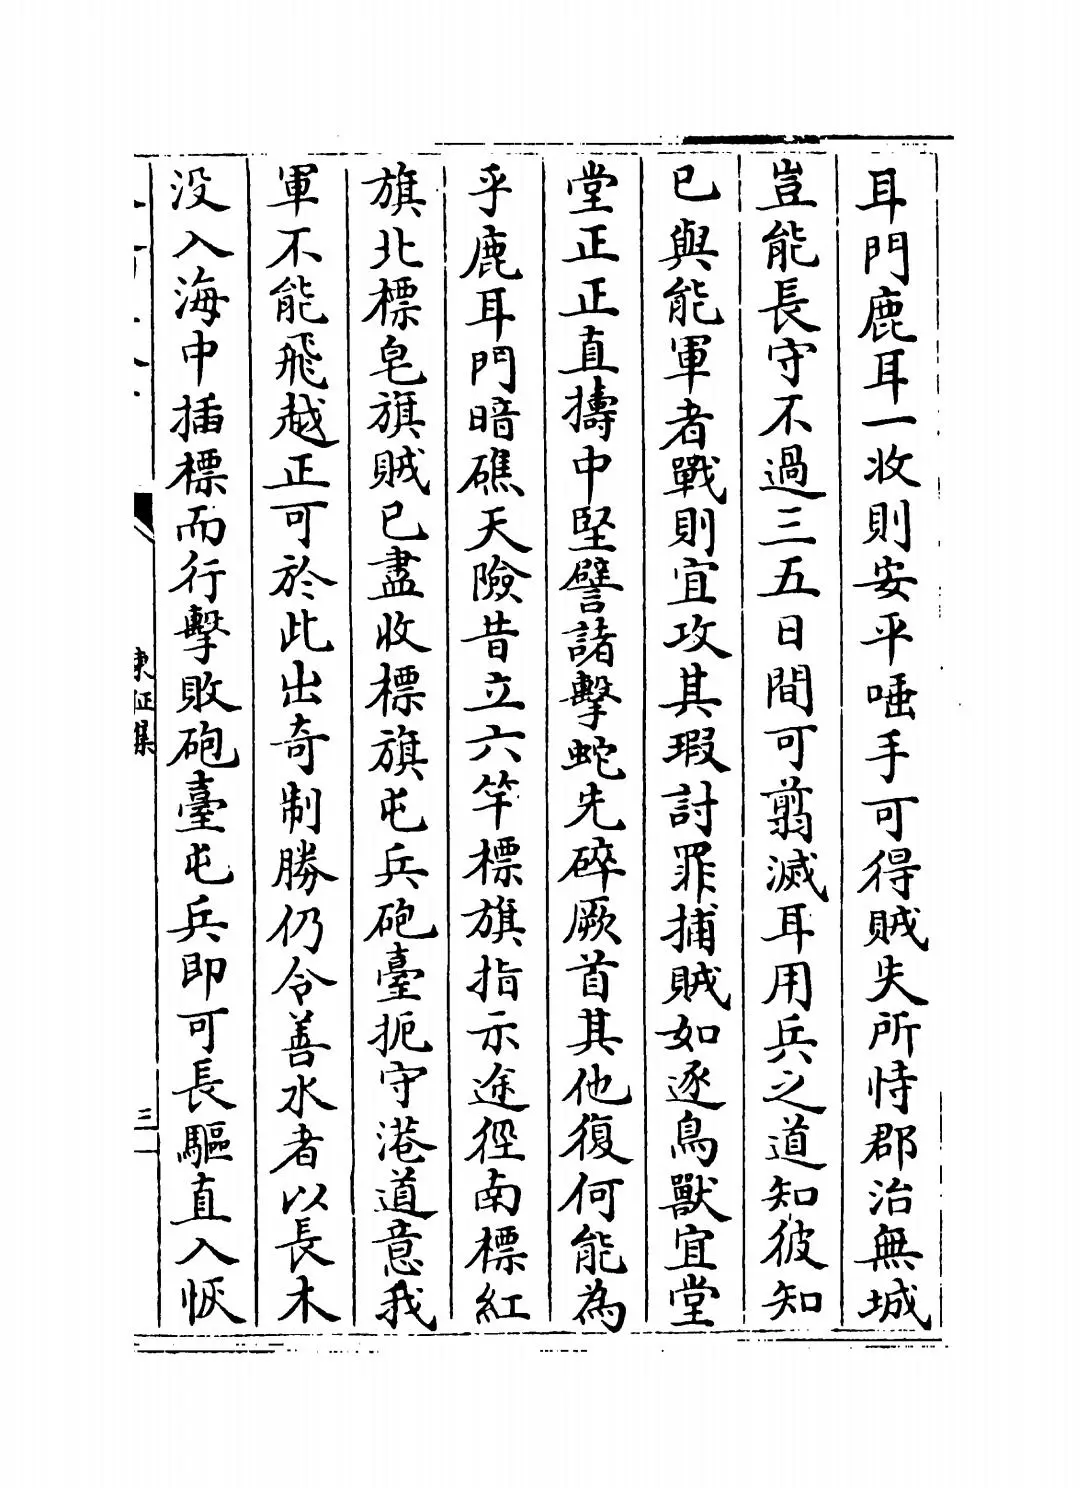 耳門鹿耳一收則安平唾手可得賊失所恃郡治無城
豈能長守不過三五日間可翦滅耳用兵之道知彼知
已與能軍者戰則宜攻其瑕討罪捕賊如逐鳥獸宜堂
堂正正直擣中堅譬諸擊蛇先碎厥首其他復何能為
乎鹿耳門暗礁天險昔立六竿標旗指示途徑南標紅
旗北標皂旗賊已盡收標旗屯兵砲臺扼守港道意我
軍不能飛越正可於此出奇制勝仍令善水者以長木
没入海中插標而行擊敗砲臺屯兵即可長驅直入恢
東征集
三一